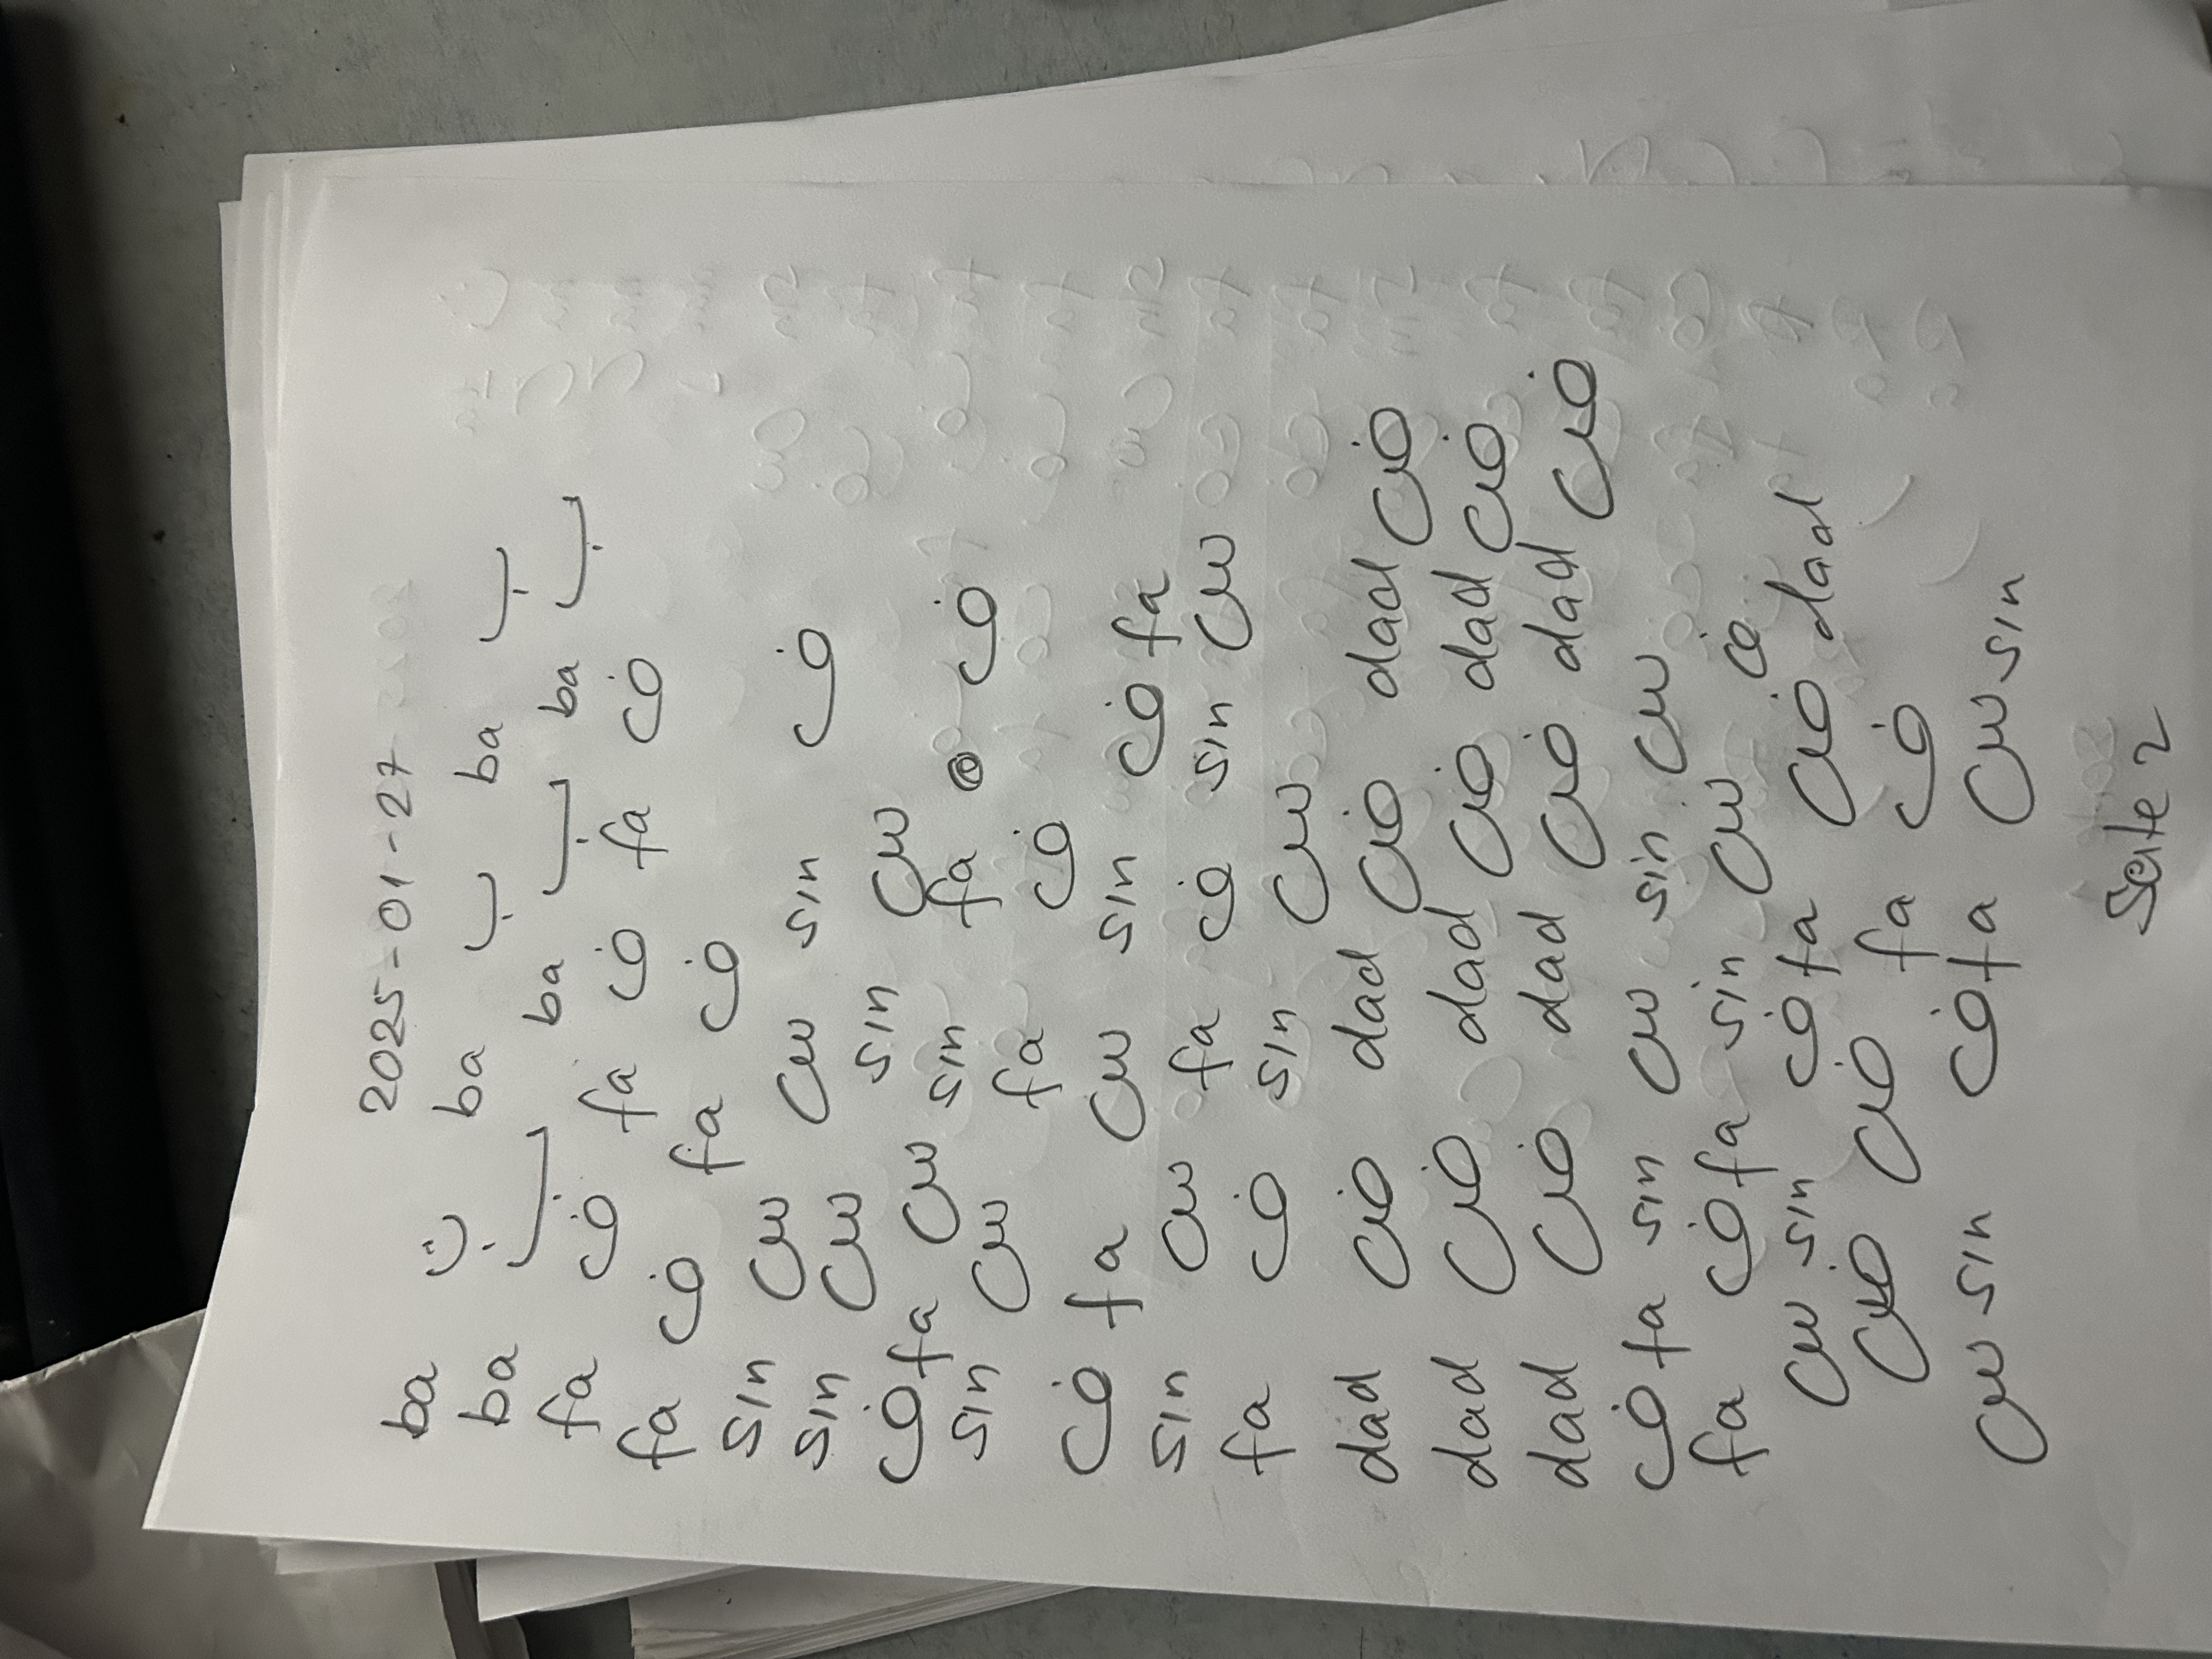 2025-01-27
ba ب ba ب ba ب
ba ب ba ب ba ب
fa ف fa ف fa ف
fa ف fa ف
sin س س sin ف
sin س sin س
ف fa س sin fa ف
sin س fa ف
ف fa س sin ف fa
sin س fa ف sin س
fa ف sin س
dad ض dad ض dad ض
dad ض dad ض dad ض
dad ض dad ض dad ض
ف fa sin س sin س
fa ف fa sin س ف
س sin ف fa ض dad
ض ض fa ف
س sin ف fa س sin
Seite 2